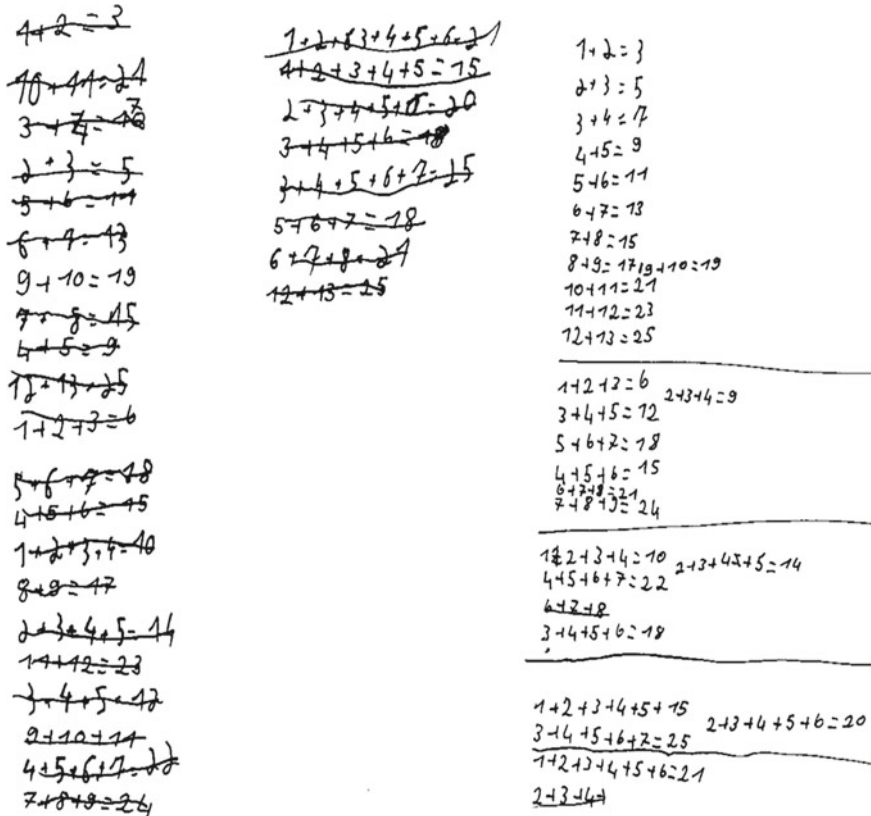 1+2=3
10+11=21
3+4=7
2+3=5
5+6=11
6+7=13
9+10=19
7+8=15
4+5=9
12+13=25
1+2+3=6
5+6+7=18
4+5+6=15
1+2+3+4=10
8+9=17
2+3+4+5=14
11+12=23
3+4+5=12
9+10+11
4+5+6+7=22
7+8+9=24
1+2+3+4+5+6=21
1+2+3+4+5=15
2+3+4+5+6=20
3+4+5+6=18
3+4+5+6+7=25
5+6+7=18
6+7+8=21
12+13=25
1+2=3
2+3=5
3+4=7
4+5=9
5+6=11
6+7=13
7+8=15
8+9=17 9+10=19
10+11=21
11+12=23
12+13=25
1+2+3=6 2+3+4=9
3+4+5=12
5+6+7=18
4+5+6=15
6+7+8=21
7+8+9=24
1+2+3+4=10 2+3+4+5=14
4+5+6+7=22
6+7+8
3+4+5+6=18
1+2+3+4+5+15
3+4+5+6+7=25 2+3+4+5+6=20
1+2+3+4+5+6=21
2+3+4+